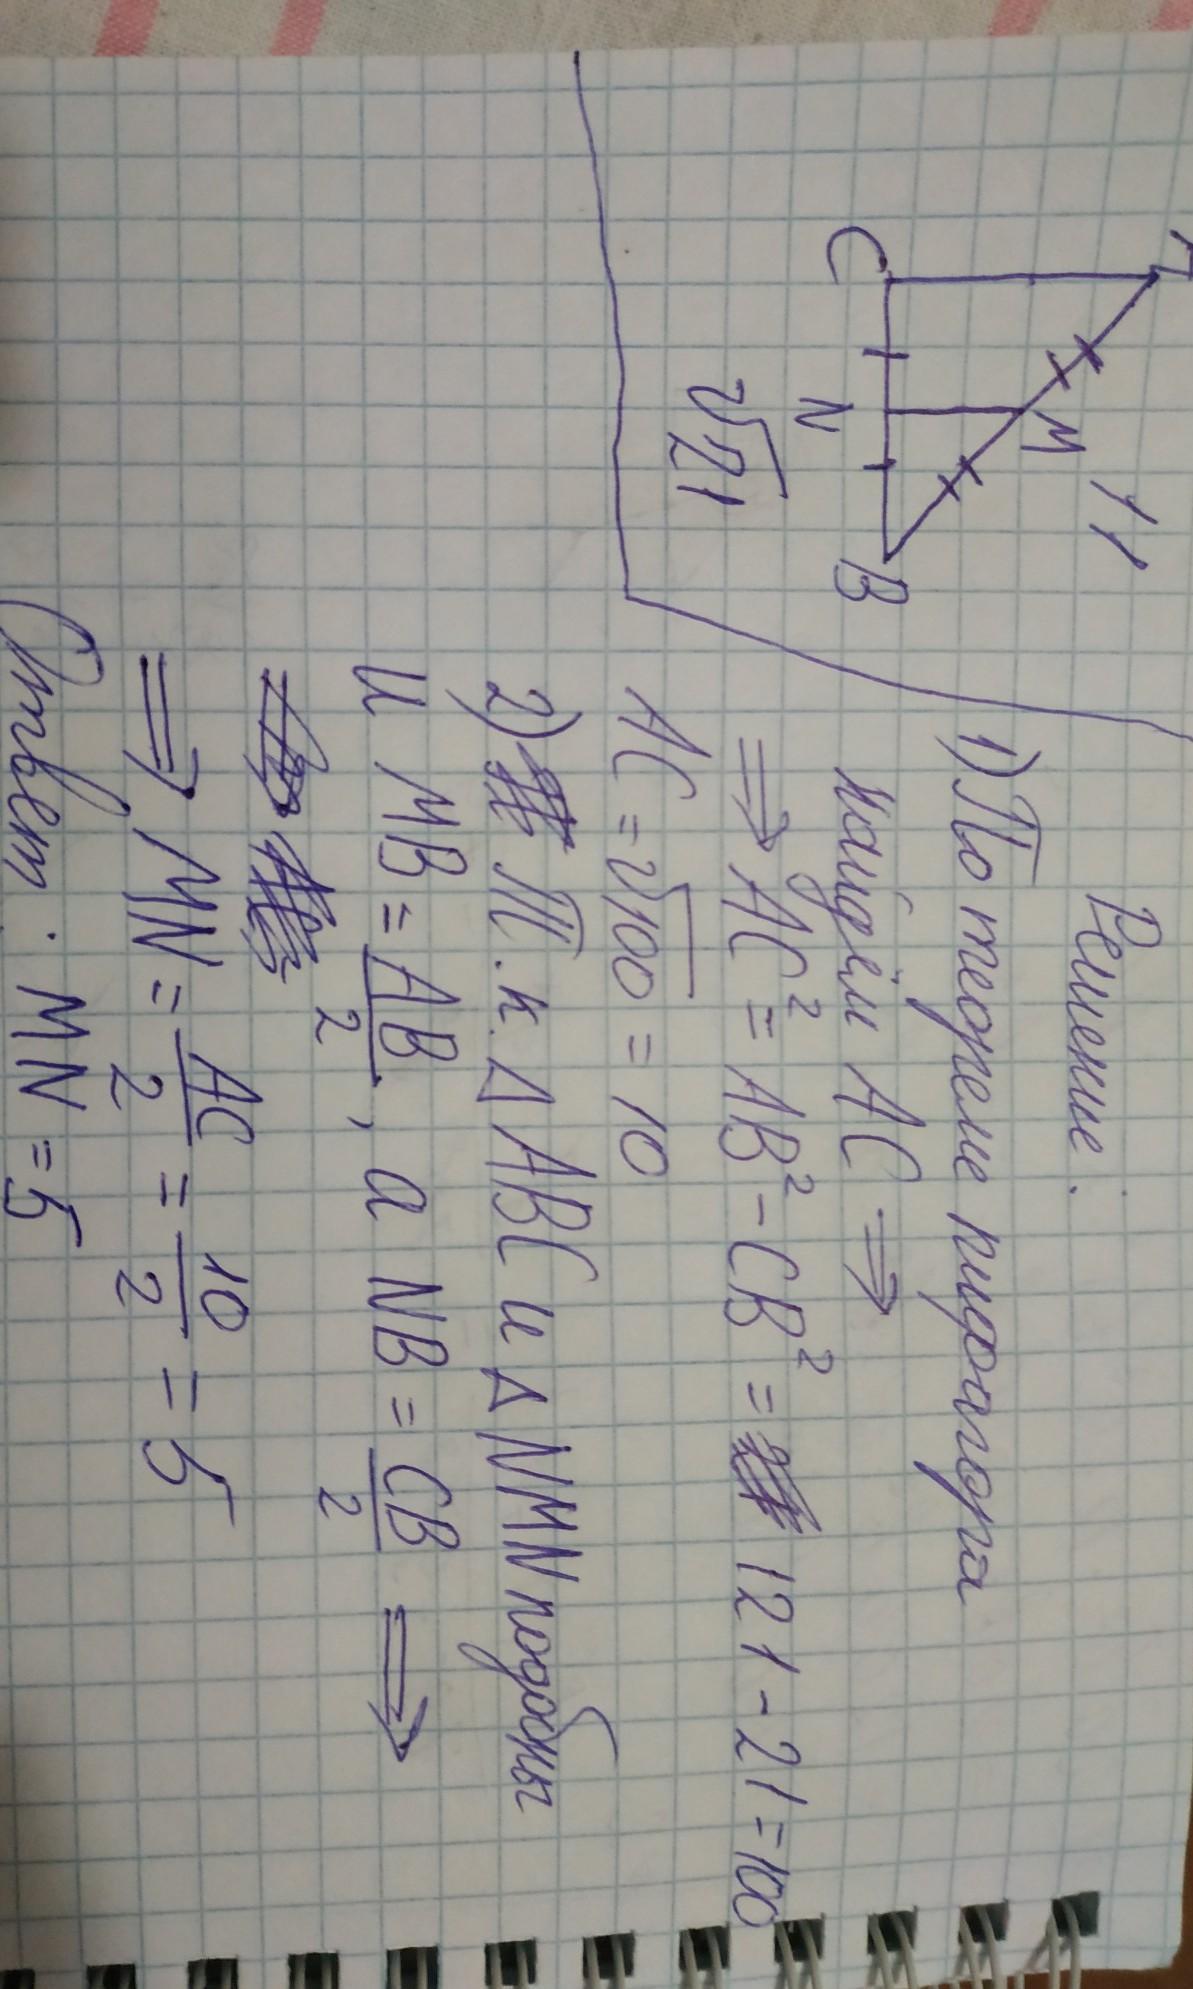 A
M
11
C
N
B
√21
Решение:
1) По теореме пифагора
найдём AC ⇒
⇒ AC² = AB² - CB² = 121 - 21 = 100
AC = √100 = 10
2) Т.к. Δ ABC и Δ NMN подобны
и MB = AB/2, а NB = CB/2 ⇒
⇒ MN = AC/2 = 10/2 = 5
Ответ: MN = 5